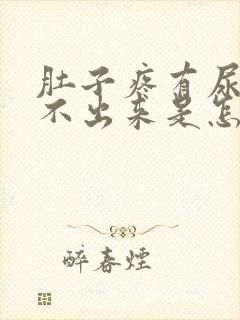 肚子疼有尿
不出来是怎
醉春烟